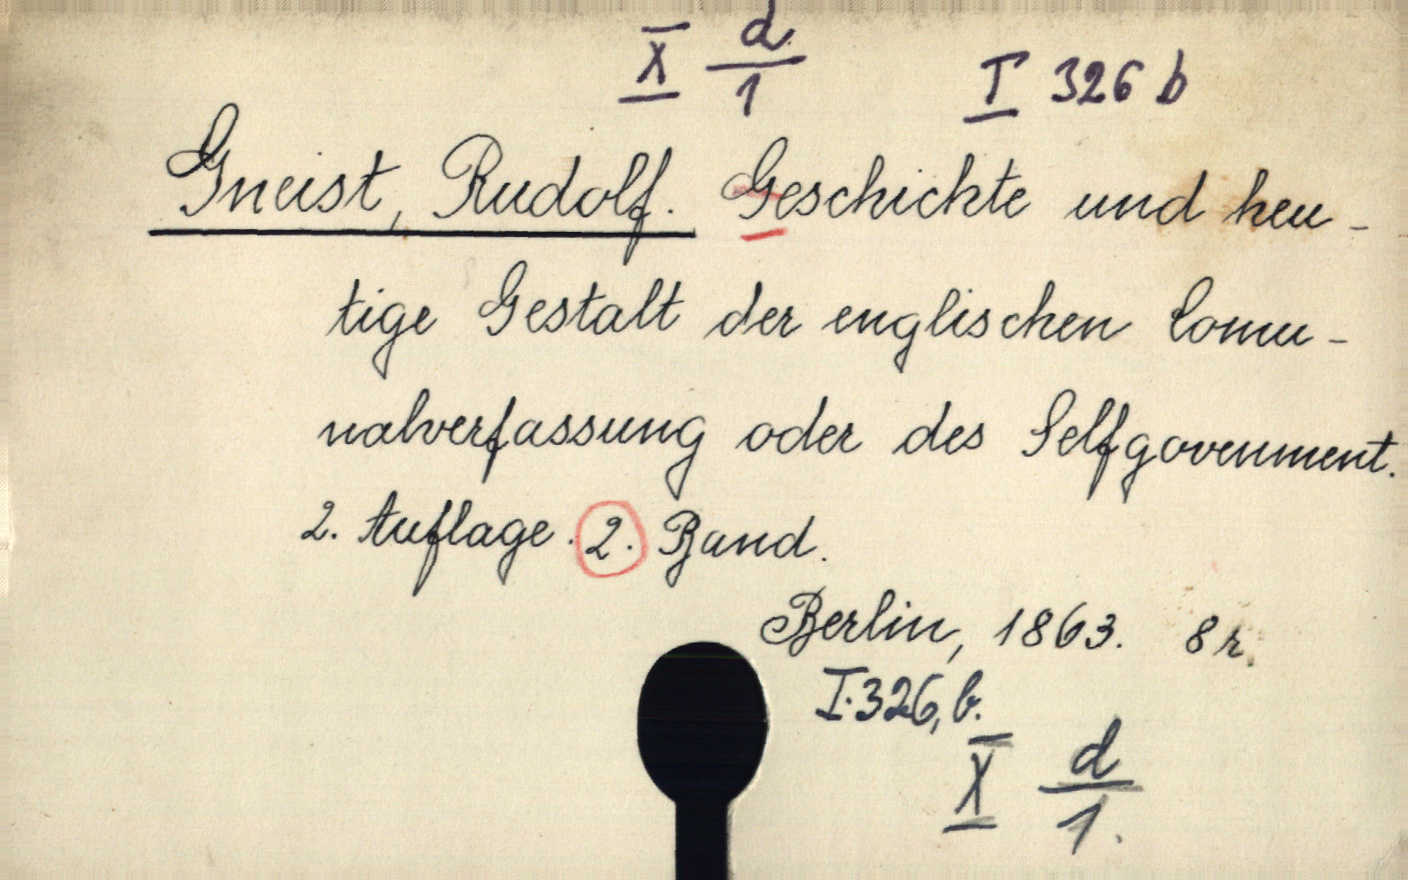 X d/1 I 326 b
Gneist, Rudolf. Geschichte und heu-
tige Gestalt der englischen Comu-
nalverfassung oder des Selfgovernment.
2. Auflage. 2. Band.
Berlin, 1863. 8r.
I.326,b.
X d/1.